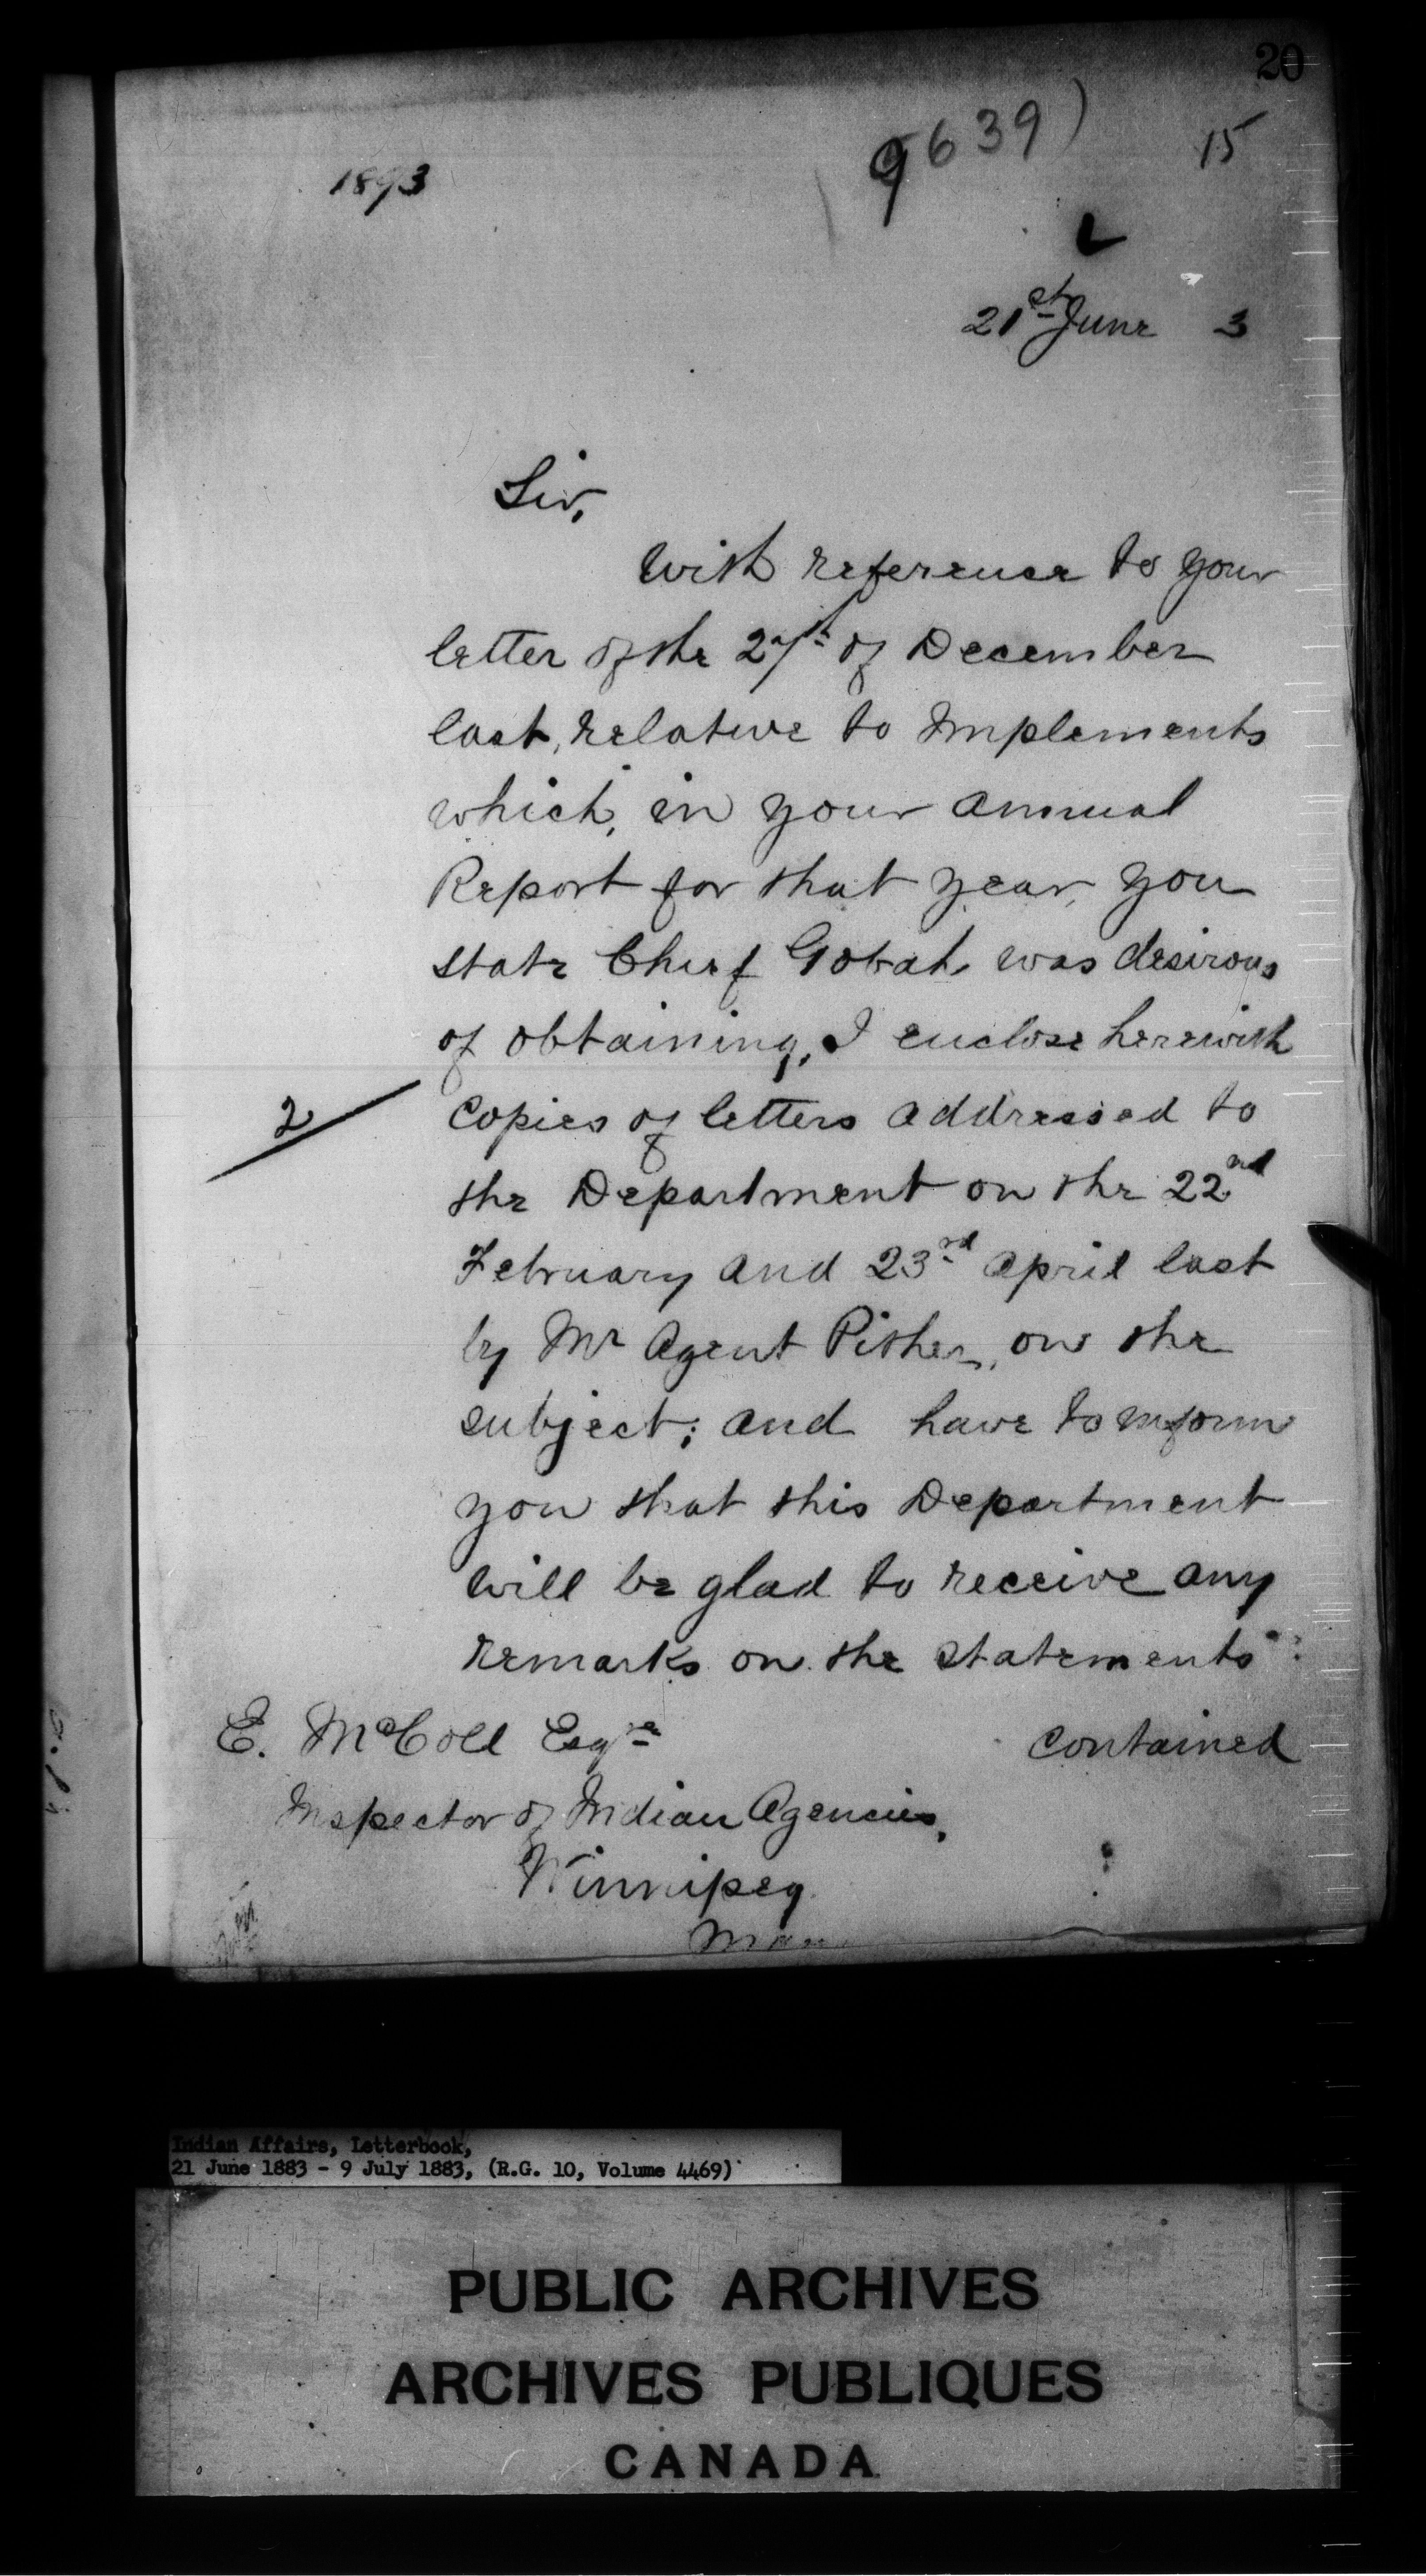 20
9639)
15
1893
21st June 3
Sir,
With reference to your
letter of the 27th of December
last, relative to Implements
which, in your annual
Report for that year, you
state Chief Gobah was desirous
of obtaining, I enclose herewith
2
copies of letters addressed to
the Department on the 22nd
February and 23rd April last
by Mr Agent Pither, on the
subject; and have to inform
you that this Department
will be glad to receive any
remarks on the statements
contained
E. McColl Esqre
Inspector of Indian Agencies,
Winnipeg
Man
Indian Affairs, Letterbook,
21 June 1883 - 9 July 1883, (R.G. 10, Volume 4469)
PUBLIC ARCHIVES
ARCHIVES PUBLIQUES
CANADA